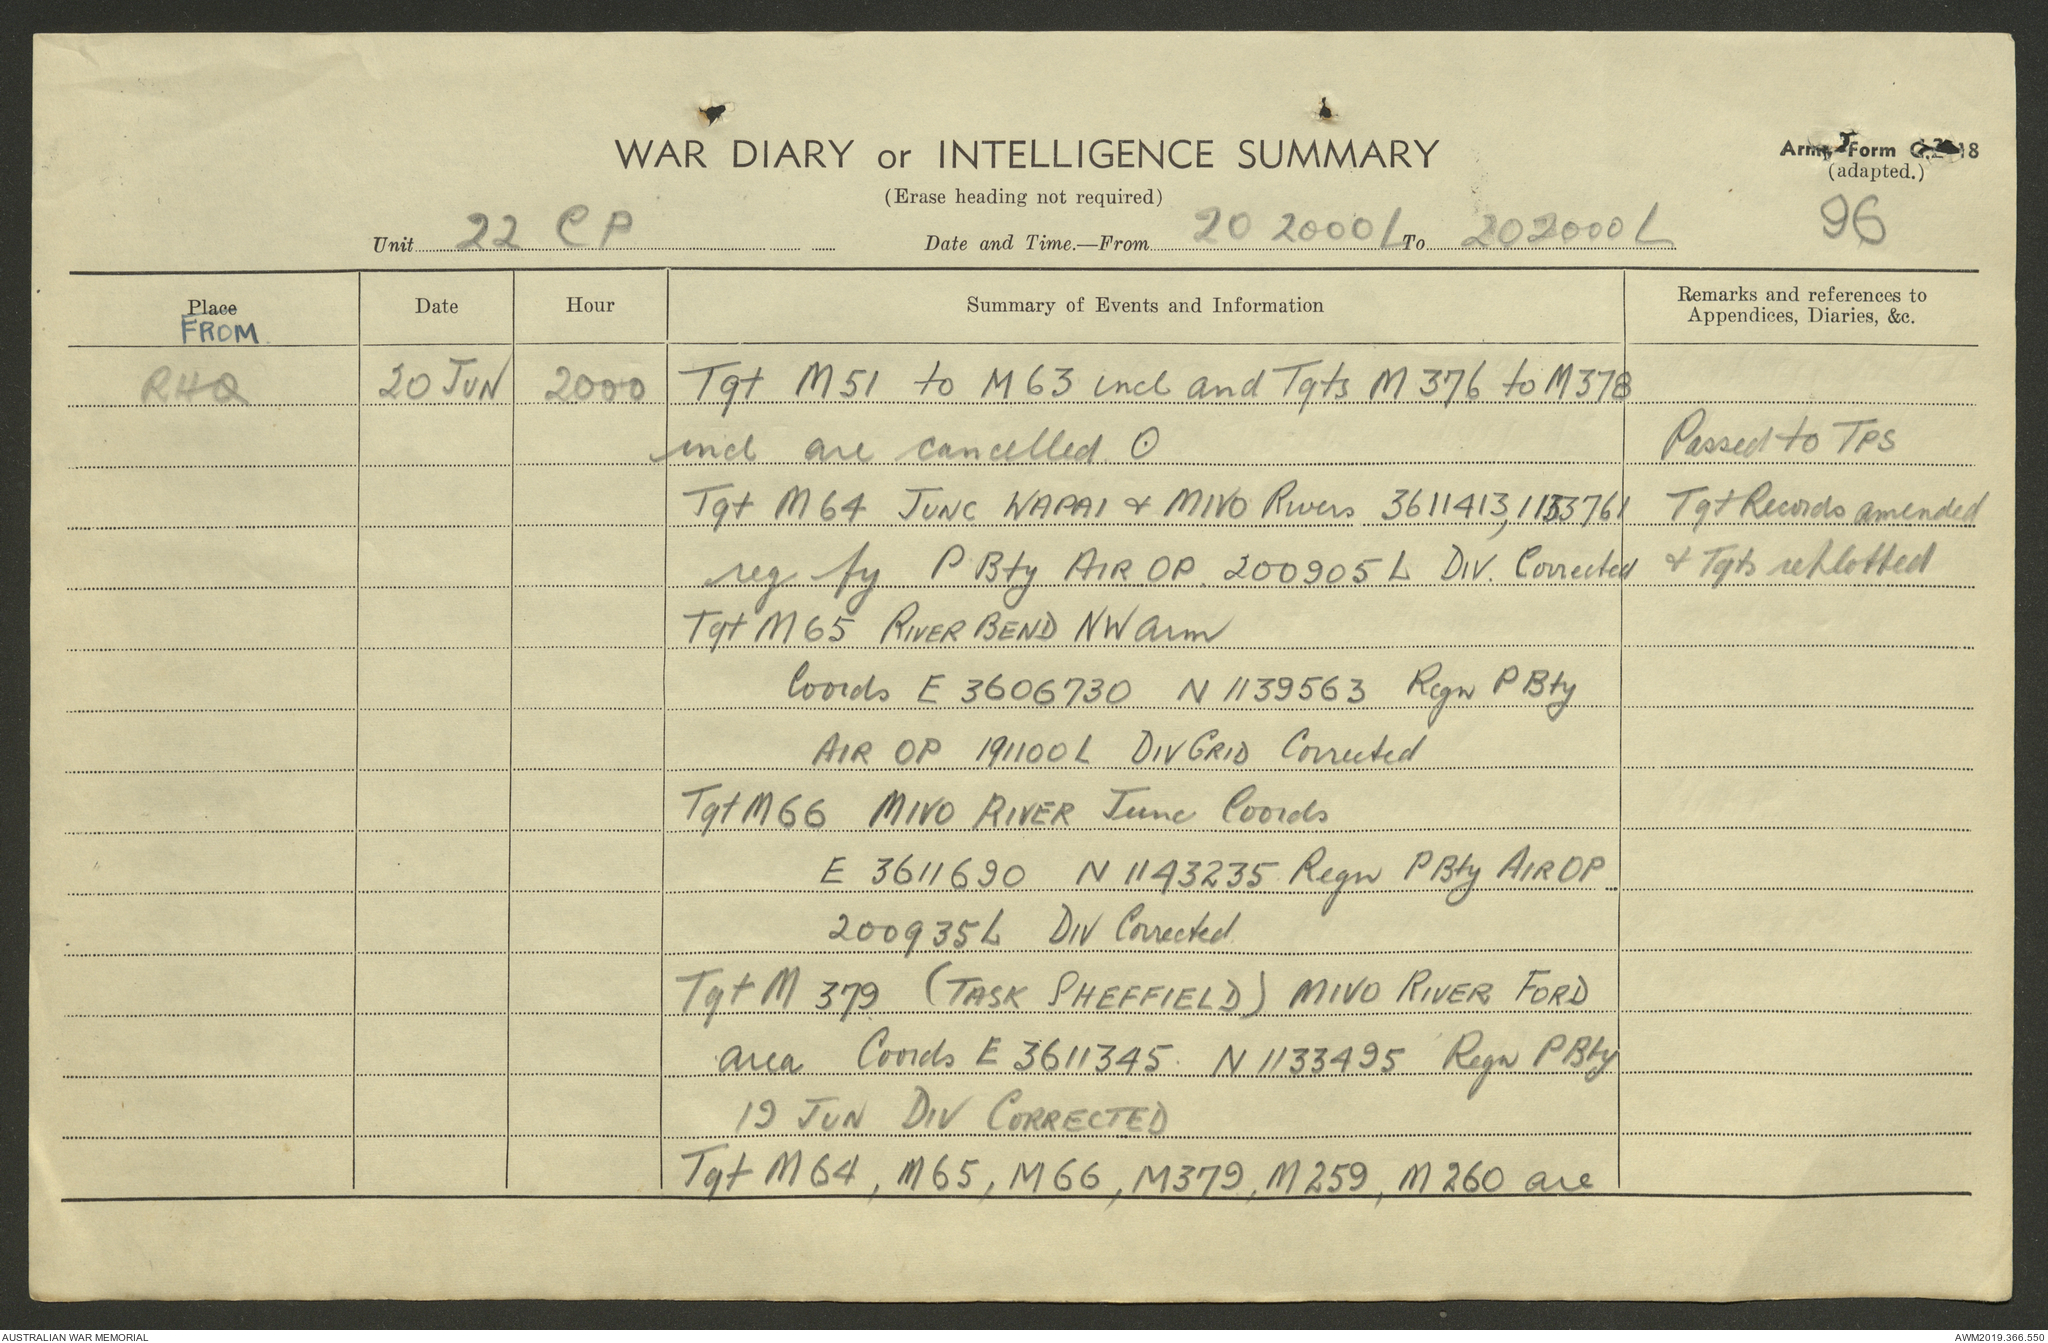 WAR DIARY or INTELLIGENCE SUMMARY
(Erase heading not required)
Army Form
(adapted.)
96
Unit 22 CP Date and Time.—From 20 2000L To 202000L
Place Date Hour Summary of Events and Information Remarks and references to Appendices, Diaries, &c.
FROM
RHQ 20 JUN 2000 Tgt M51 to M63 incl and Tgts M376 to M378
incl are cancelled ⊙ Passed to TPS
Tgt M64 JUNC WAPAI & MIVO Rivers 3611413, 1133761 Tgt Records amended
reg fy P Bty AIR OP. 200905L DIV. Corrected & Tgts replotted
Tgt M65 RIVER BEND NW arm
Coords E 3606730 N 1139563 Regn P Bty
AIR OP 191100L DIV GRID Corrected
Tgt M66 MIVO RIVER Junc Coords
E 3611690 N 1143235 Regn P Bty AIR OP
200935L DIV Corrected
Tgt M 379 (TASK SHEFFIELD) MIVO RIVER FORD
area Coords E 3611345 N 1133495 Regn P Bty
19 JUN DIV CORRECTED
Tgt M64, M65, M66, M379, M259, M260 are
AUSTRALIAN WAR MEMORIAL
AWM2019.366.550